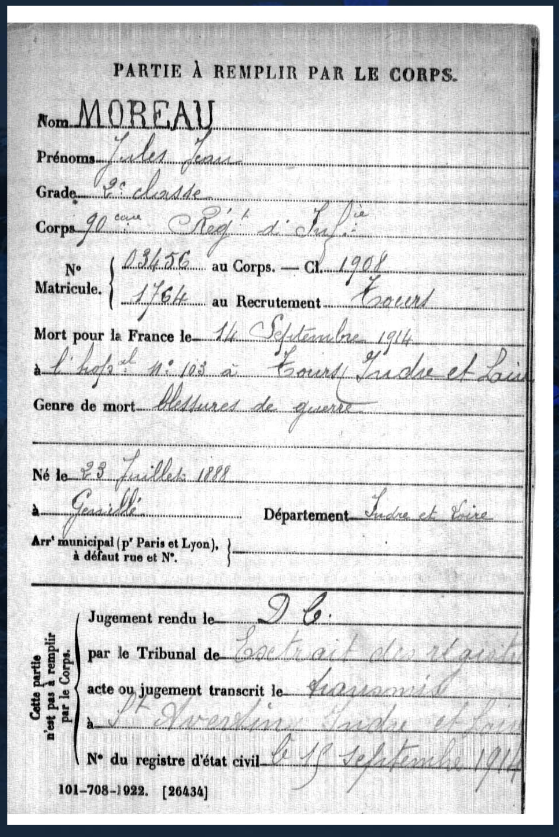 PARTIE À REMPLIR PAR LE CORPS.
Nom MOREAU
Prénoms Jules Jean
Grade 2e classe
Corps 90eme Régt d'Infie
No Matricule. { 03456 au Corps. — Cl. 1908
1764 au Recrutement Tours
Mort pour la France le 14 Septembre 1914
à l'hopal no 103 à Tours (Indre et Loire
Genre de mort blessures de guerre
Né le 23 Juillet 1888
à Genillé Département Indre et Loire
Arrt municipal (pr Paris et Lyon), à défaut rue et No. }
Cette partie n'est pas à remplir par le Corps.
Jugement rendu le D C.
par le Tribunal de Extrait des registr
acte ou jugement transcrit le transmis
à St Avertin, Indre et Loire
No du registre d'état civil le 15 septembre 1914
101-708-1922. [26434]